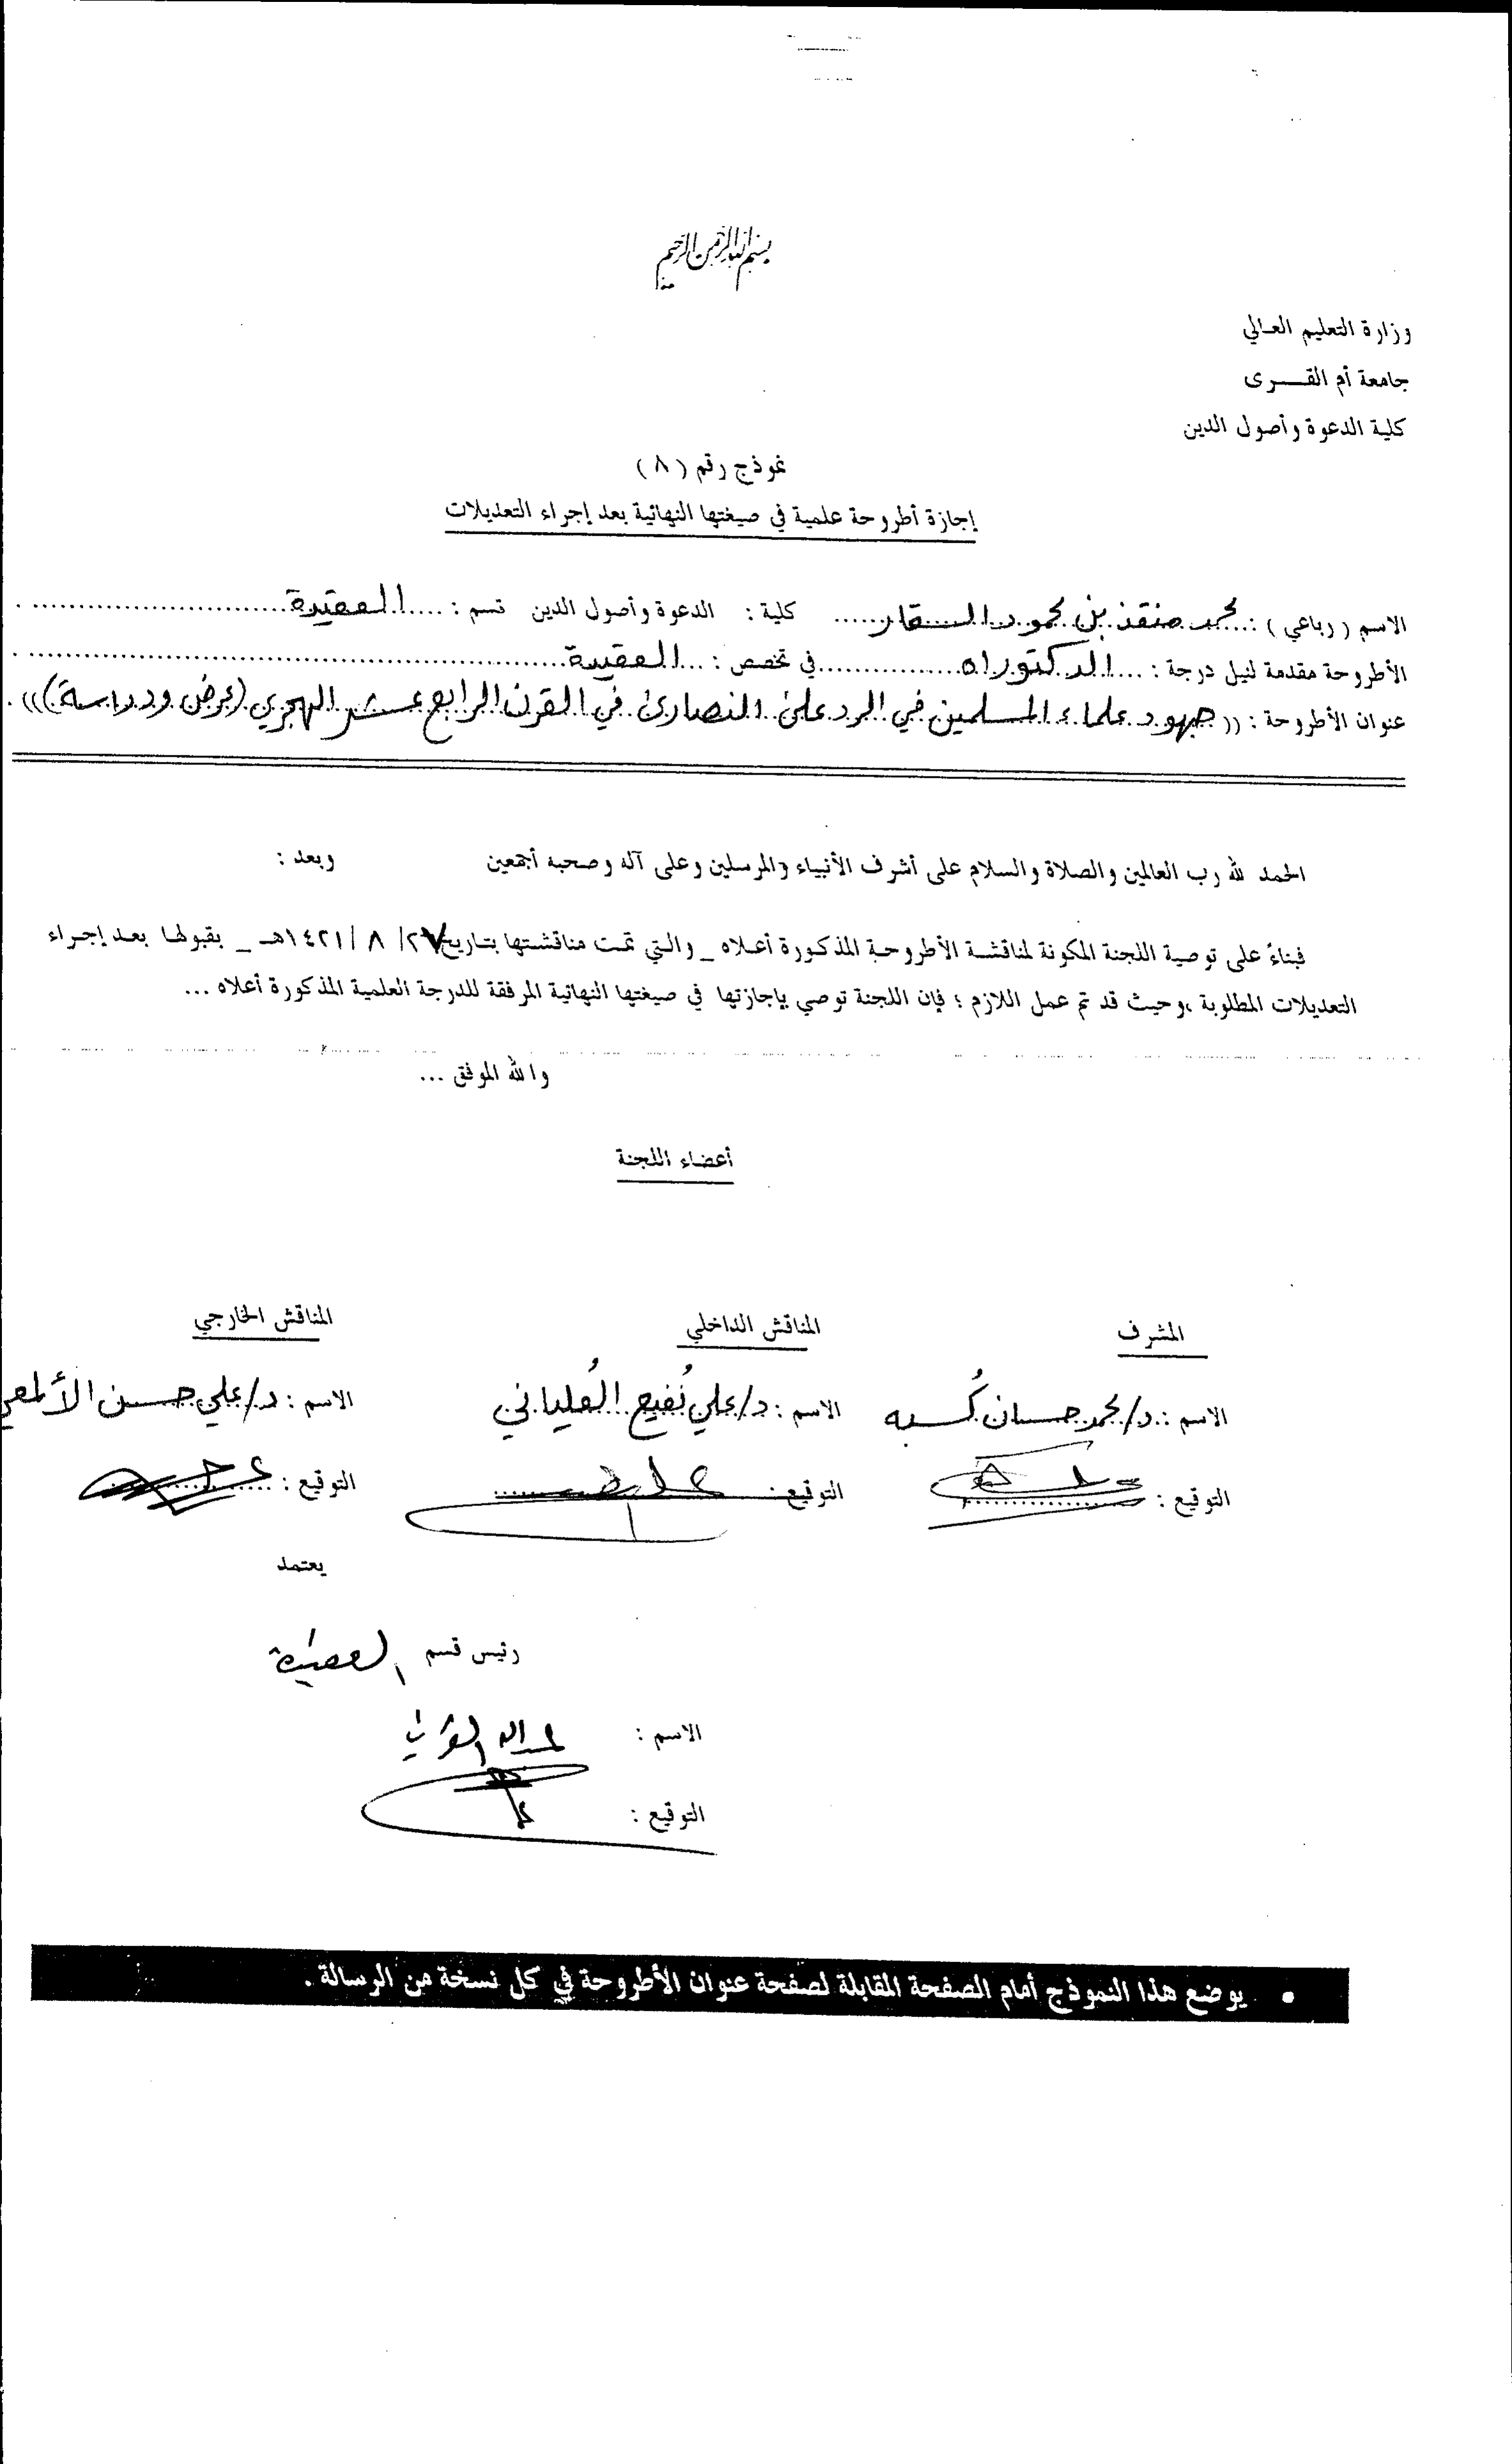 بسم الله الرحمن الرحيم
وزارة التعليم العالي
جامعة أم القــــرى
كلية الدعوة وأصول الدين
نموذج رقم ( ٨ )
إجازة أطروحة علمية في صيغتها النهائية بعد إجراء التعديلات
الاسم ( رباعي ) : محمد منقذ بن محمود السقار كلية : الدعوة وأصول الدين قسم : العقيدة
الأطروحة مقدمة لنيل درجة : الدكتوراه في تخصص : العقيدة
عنوان الأطروحة : (( جهود علماء المسلمين في الرد على النصارى في القرن الرابع عشر الهجري (عرض ودراسة) )) .
الحمد لله رب العالمين والصلاة والسلام على أشرف الأنبياء والمرسلين وعلى آله وصحبه أجمعين وبعد :
فبناءً على توصية اللجنة المكونة لمناقشة الأطروحة المذكورة أعلاه _ والتي تمت مناقشتها بتاريخ ٢٧/ ٨ /١٤٢١هـ _ بقبولها بعد إجراء
التعديلات المطلوبة ،وحيث قد تم عمل اللازم ؛ فإن اللجنة توصي بإجازتها في صيغتها النهائية المرفقة للدرجة العلمية المذكورة أعلاه ...
والله الموفق ...
أعضاء اللجنة
المشرف المناقش الداخلي المناقش الخارجي
الاسم : د/محمد حسان كُسبه الاسم : د/علي نُفيع العُلياني الاسم : د/علي حسن الألمعي
التوقيع : التوقيع : التوقيع :
يعتمد
رئيس قسم العقيدة
الاسم : عبدالله القرني
التوقيع :
• يوضع هذا النموذج أمام الصفحة المقابلة لصفحة عنوان الأطروحة في كل نسخة من الرسالة .